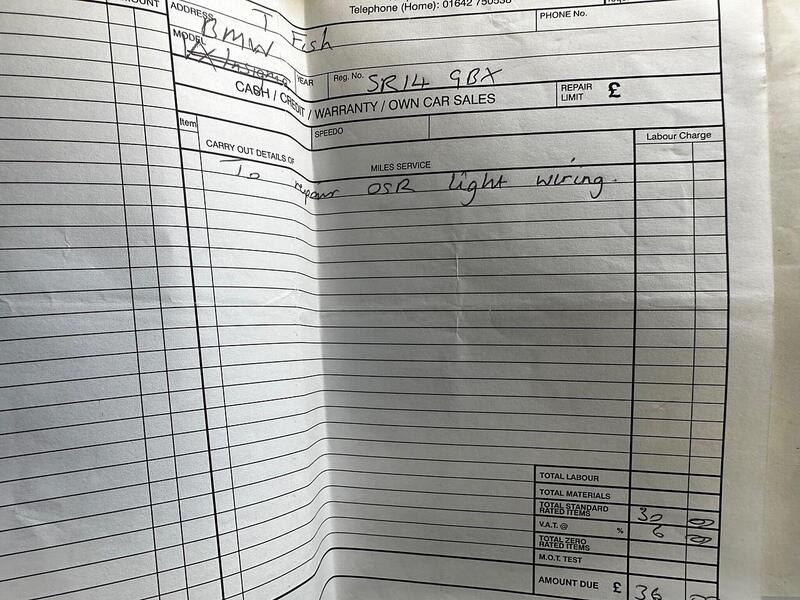 Telephone (Home): 01642 750538
ADDRESS T Fish
PHONE No.
AMOUNT
BMW
MODEL
YEAR
Reg. No. SR14 9BX
CASH / CREDIT / WARRANTY / OWN CAR SALES
REPAIR LIMIT £
Item
SPEEDO
Labour Charge
CARRY OUT DETAILS OF MILES SERVICE
To repair OSR light wiring.
TOTAL LABOUR
TOTAL MATERIALS
TOTAL STANDARD RATED ITEMS 30 00
V.A.T. @ % 6 00
TOTAL ZERO RATED ITEMS
M.O.T. TEST
AMOUNT DUE £ 36